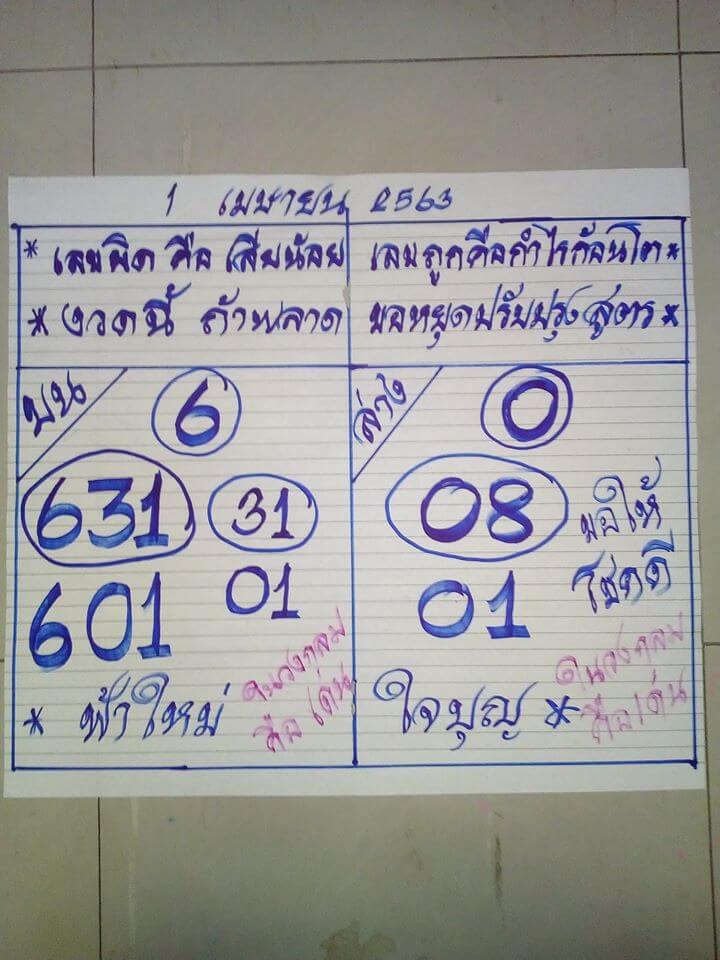 1 เมษายน 2563
* เลขผิด คือ เสียน้อย เลขถูกคือกำไรก้อนโต *
* งวดนี้ ถ้าพลาด ขอหยุดปรับปรุงสูตร *
บน 6
631 31
601 01
* ฟ้าใหม่
ในวงกลม
คือเด่น
ล่าง 0
08
01
ขอให้
โชคดี
ใจบุญ *
ในวงกลม
คือเด่น